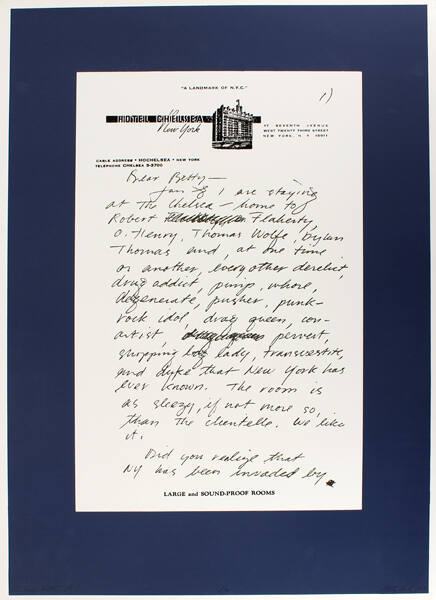 "A LANDMARK OF N.Y.C."
1)
HOTEL CHELSEA
New York
AT SEVENTH AVENUE
WEST TWENTY THIRD STREET
NEW YORK, N. Y. 10011
CABLE ADDRESS • HOCHELSEA • NEW YORK
TELEPHONE CHELSEA 3-3700
Dear Betty—
Jan & I are staying
at The Chelsea — home to
Robert Flaherty,
O. Henry, Thomas Wolfe, Dylan
Thomas and, at one time
or another, every other derelict,
drug addict, pimp, whore,
degenerate, pusher, punk-
rock idol, drag queen, con-
artist, pervert,
shopping bag lady, transvestite,
and dyke that New York has
ever known. The room is
as sleezy, if not more so,
than the clientelle. We like
it.
Did you realize that
NY has been invaded by
LARGE and SOUND-PROOF ROOMS